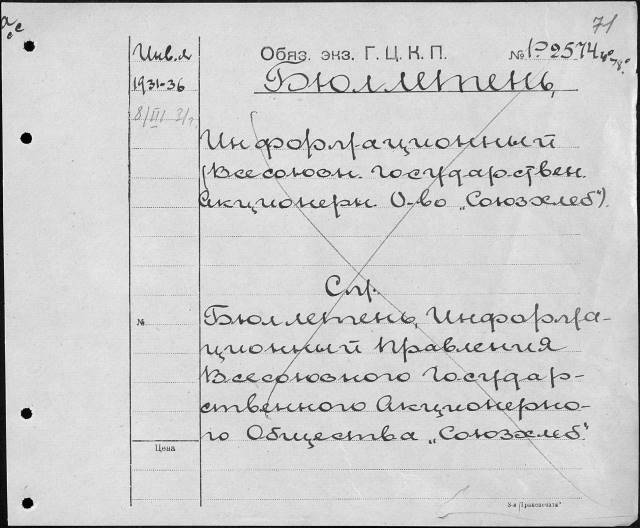 71
Инв. я
Обяз. экз. Г. Ц. К. П.
№ 1Р2574
1931-36
Бюллетень,
8/III 31г
Информационный
(Всесоюзн. государствен.
Акционерн. О-во „Союзхлеб“).
См.
№
Бюллетень, Информа-
ционный Правления
Всесоюзного Государ-
ственного Акционерно-
го Общества „Союзхлеб“
Цена
3-я „Транспечати“